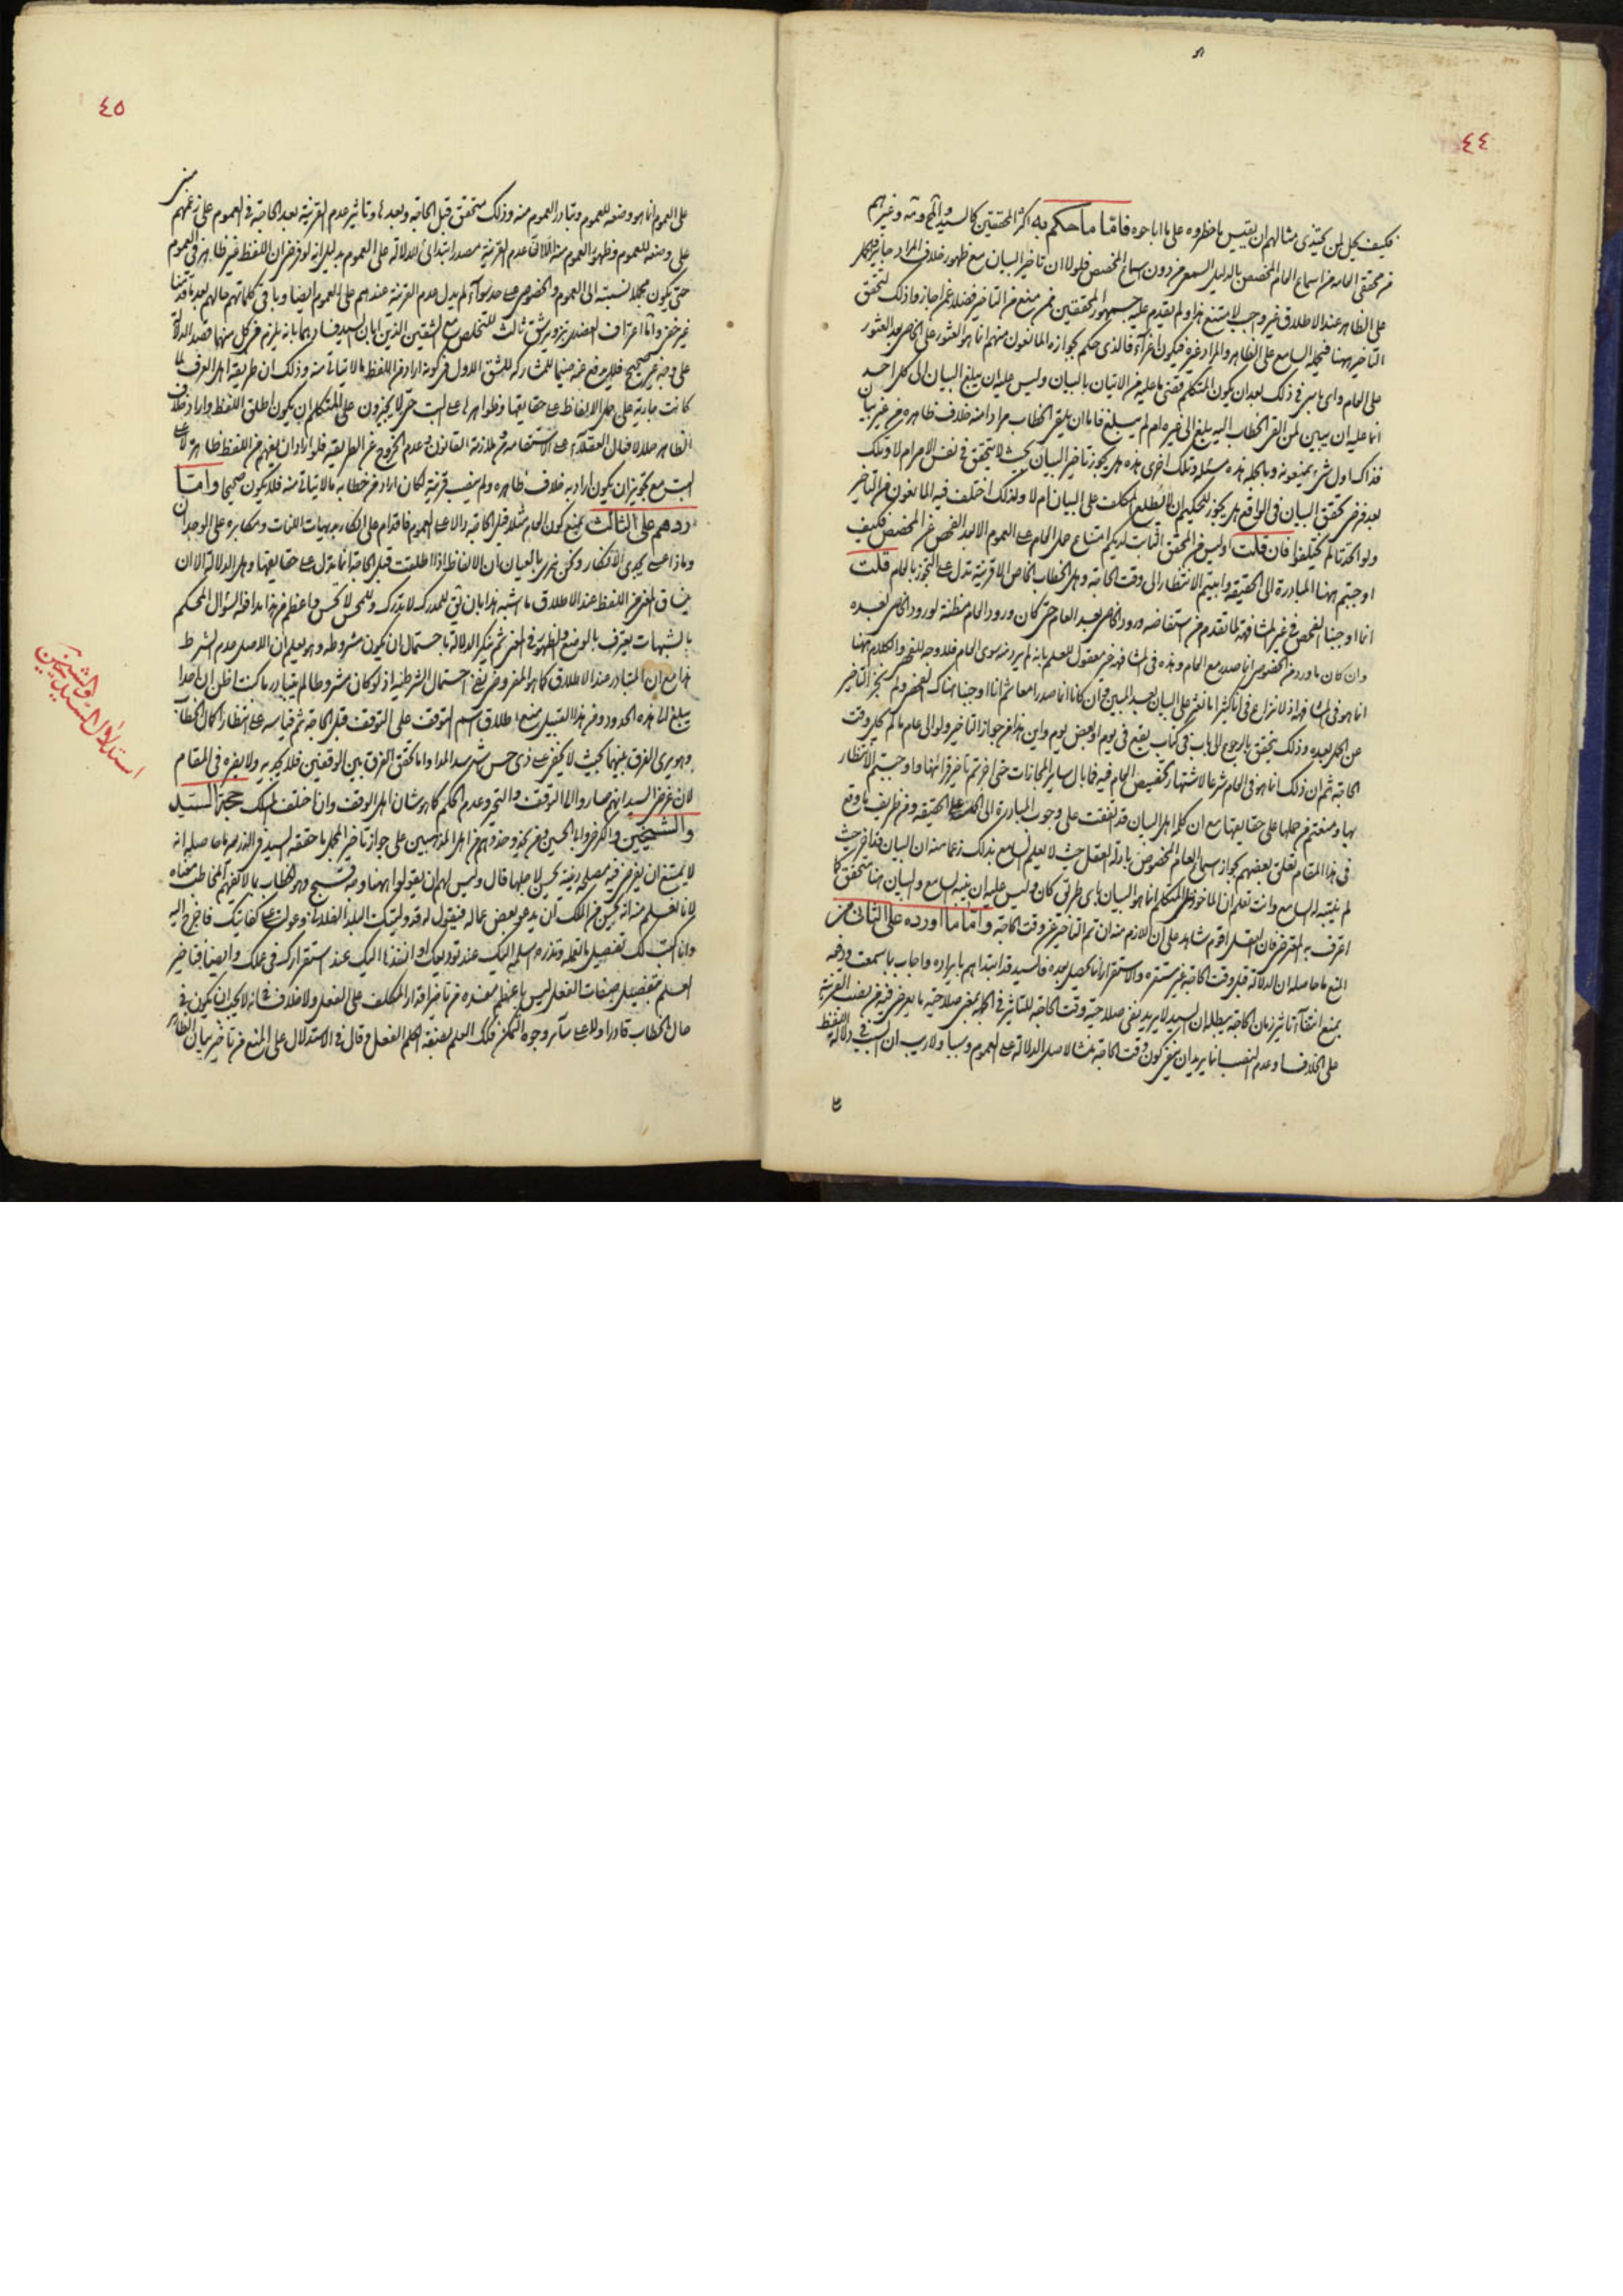 ٤٤
فكيف يحل لمن يحتذي مثالهم ان يقيس ما حظروه على ما اباحوه فاما ما حكم به اكثر المحققين كالسيد والشيخ وغيرهم
من محققي العامة من اسماع العام المخصص بالدليل السمعي من دون اسماع المخصص فلولا ان تاخير البيان مع ظهور خلاف المراد جايز
على الظاهر عند الاطلاق غير واجب لامتنع هذا ولم يقدم عليه جمهور المحققين ممن منع من التاخير فضلا عمن جاز واذ ذلك لتحقق
التاخير ههنا فيحمله السامع على الظاهر والمراد غيره فيكون اغراء فالذي حكم بجوازه المانعون منهم انما هو العثور على الخاص بعد العثور
على العام واي باس في ذلك بعد ان يكون المتكلم قضى ما عليه من الاتيان بالبيان وليس عليه ان يبلغ البيان الى كل احد
انما عليه ان يبين لمن القى الخطاب اليه بلغ الى غيره ام لم يبلغ فاما ان يلقى الخطاب مرادا منه خلاف ظاهره من غير بيان
فذاك اول شيء يمنعونه وبالجملة هذه مسئلة وتلك اخرى هذه هل يجوز تاخير البيان بحيث لا يتحقق في نفس الامر ام لا وتلك
بعد فرض تحقق البيان في الواقع هل يجوز للحكيم ان لا يطلع المكلف على البيان ام لا ولذلك اختلف فيه المانعون من التاخير
ولو اتحدتا لم يختلفوا فان قلت اوليس من المحقق الثابت لديكم امتناع حمل العام على العموم الا بعد الفحص عن المخصص فكيف
اوجبتم ههنا المبادرة الى الحقيقة وابيتم الانتظار الى وقت الحاجة وهل الخطاب الخاص الا قرينة تدل على التجوز بالعام قلت
انما اوجبنا الفحص في غير المشافهة لما تقدم من استفاضة ورود الخاص بعد العام حتى كان ورود العام مظنة لورود الخاص بعده
وان كان ما ورد من الخصوص انما صدر مع العام وهذه في المشافهة غير معقول للعلم بانه لم يرد منه سوى العام فلا وجه للفحص والكلام ههنا
انما هو في المشافهة اذ لا نزاع في انا كثيرا ما نعثر على البيان بعد المبين وان كانا انما صدرا معا ثم انا اوجبنا هناك الفحص ولم نجز التاخير
عن الحمل بعده وذلك يتحقق بالرجوع الى باب في كتاب يقع في يوم او بعض يوم واين هذا من جواز التاخير ولو الى عام ما لم يحل وقت
الحاجة ثم ان ذلك انما هو في العام شرعا لاشتهار تخصيص العام فيه فما بال ساير المجازات حتى اخرتم تاخير قرائنها واوجبتم الانتظار
بها ومنعتم من حملها على حقايقها مع ان كلمة اهل البيان قد اتفقت على وجوب المبادرة الى الحمل على الحقيقة ومن ظريف ما وقع
في هذا المقام تعلق بعضهم بجواز اسماع العام المخصوص بادلة العقل حيث لا يعلم السامع بذلك زعما منه ان البيان هنا اخر حيث
لم ينبه له السامع وانت تعلم ان الماخوذ على المتكلم انما هو البيان باي طريق كان وليس عليه ان ينبه السامع والبيان هنا متحقق كما
اعترف به المعترض فان العقل اقوم شاهد على ان اللازم منه ان تم التاخير عن وقت الحاجة واما ما اورده على الثاني من
المنع ما حاصله ان الدلالة قبل وقت الحاجة غير مستقرة والاستقرار انما يحصل بعده فالسيد قد ابتدا بهم بايراده واجاب بما سمعت ودفعه
بمنع انتفاء تاثير زمان الحاجة يبطله ان السيد لا يريد نفي صلاحية وقت الحاجة للتاثير في الجملة بمعنى صلاحيته ما يعرض فيه من نصب القرينة
على الخلاف وعدم النصب انما يريد ان ينفي كون وقت الحاجة منشا لاصل الدلالة على العموم وسببا ولا ريب ان السبب في دلالة اللفظ
٤٥
على العموم انما هو وضعه للعموم وتبادر العموم منه وذلك متحقق قبل الحاجة وبعدها وتاثير عدم القرينة بعد الحاجة في العموم على زعمهم مبني
على وضعه للعموم وظهور العموم منه لا ان عدم القرينة مصدر ابتدائي للدلالة على العموم بدليل انه لو فرض ان اللفظ غير ظاهر في العموم
حتى يكون مجملا نسبته الى العموم والخصوص على حد سواء لم يدل عدم القرينة عندهم على العموم ايضا وباقي كلماتهم حالهم بعد ما قدمنا
غير خفي واما اعتراف العضدي بتزوير شق ثالث للتخلص مع الشقين الذين ابان السيد فسادهما بانه يلزم من كل منهما قصد الدلالة
على وجه غير صحيح فلا يرفع عنه ضيما للمشاركة للشق الاول في كونه اراد من اللفظ ما لا يتاتى منه وذلك ان طريقة اهل العرف لما
كانت جارية على حمل الالفاظ على حقايقها وظواهرها على البت حتى لا يجيزون على المتكلم ان يكون اطلق اللفظ واراد خلاف
الظاهر ميلا لافعال العقلاء على الاستقامة في ملازمة القانون وعدم الخروج عن الطريقة فلو اراد ان يفهم من اللفظ ظاهره لا على
البت مع تجويز ان يكون اراد به خلاف ظاهره ولم ينصب قرينة لكان اراد من خطابه ما لا يتاتى منه فلا يكون صحيحا واما
ردهم على الثالث بمنع كون العام مثلا قبل الحاجة دالا على العموم فاقدام على انكار بديهيات اللغات ومكابرة على الوجدان
وماذا عسى يجدي الانكار ونحن نرى بالعيان ان الالفاظ اذا اطلقت قبل الحاجة انما تدل على حقايقها وهل الدلالة الا ان
ينساق المعنى من اللفظ عند الاطلاق ما اشبه هذا بان يقال للمدرك لا تدرك وللمحس لا تحس واعظم من هذا مدافعة السؤال المحكم
بالشبهات يعترف بالوضع والظهور في المعنى ثم ينكر الدلالة باحتمال ان يكون مشروطة وهو يعلم ان الاصل عدم الشرط
هذا مع ان المتبادر عند الاطلاق كما هو المفروض ينفي احتمال الشرطية اذ لو كان مشروطا لم يتبادر ما كنت اظن ان احدا
يبلغ الى هذه الحدود ومن هذا القبيل منع اطلاق اسم التوقف على التوقف قبل الحاجة ثم قياسه على انتظار اكمال الخطاب
وهو يرى الفرق بينهما بحيث لا يخفى على ذي حس شهد سيد المداد واما تحقق الفرق بين الوقفين فلا يجديه ولا يضره في المقام
لان غرض السيد انهم صاروا الى التوقف والتحير وعدم الحكم كما هو شان اهل الوقف وان اختلف المسلك حجة السيد
والشيخين والكرخي وابا الحسين ومن يحذو حذوهم من اهل المذهبين على جواز تاخير المجمل ما حققه السيد في الذريعة ما حاصله انه
لا يمتنع ان يعرض فيه مصلحة دينية يحسن لاجلها قال وليس لهم ان يقولوا ههنا وجه قبح وهو الخطاب بما لا يفهم المخاطب معناه
لانا نعلم منه انه يحسن من الملك ان يدعو بعض عماله فيقول له قد وليتك البلد الفلاني وعولت على كفايتك فاخرج اليه
وانا اكتب لك تفصيل ما تعمله وتذره اسلمه اليك عند توديعك او انفذه اليك عند استقرارك في عملك وايضا فتاخير
العلم بتفصيل صفات الفعل ليس باعظم مفسدة من تاخير اقدار المكلف على الفعل ولا خلاف في انه لا يجب ان يكون في
حال الخطاب قادرا ولا على ساير وجوه التمكن فكذلك العلم بصفة الفعل وقال في الاستدلال على المنع من تاخير بيان الظاهر
استدلال السيد والشيخين